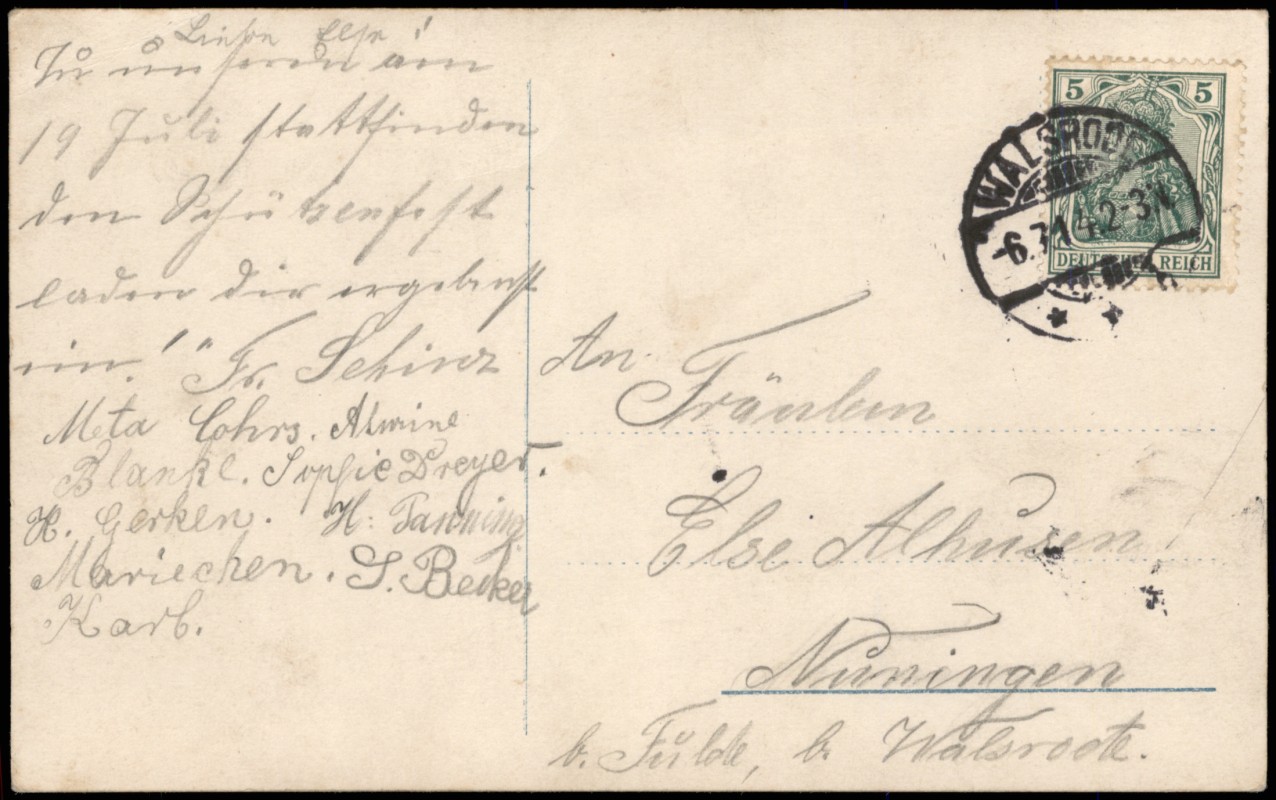 Liebe Else!
Zu unseren am
19 Juli stattfinden
den Schützenfest
laden dir ergebenst
ein! Fr. Schinz
Meta Cohrs. Alwine
Blankl. Sophie Dreyer.
H. Gerken. H. Tanning
Mariechen. S. Becker
Karb.
5 5
DEUTSCHES REICH
WALSRODE
-6.7.14.2-3N.
An
Fräulein
Else Alhusen
Nüningen
b. Fulde, b. Walsrode.